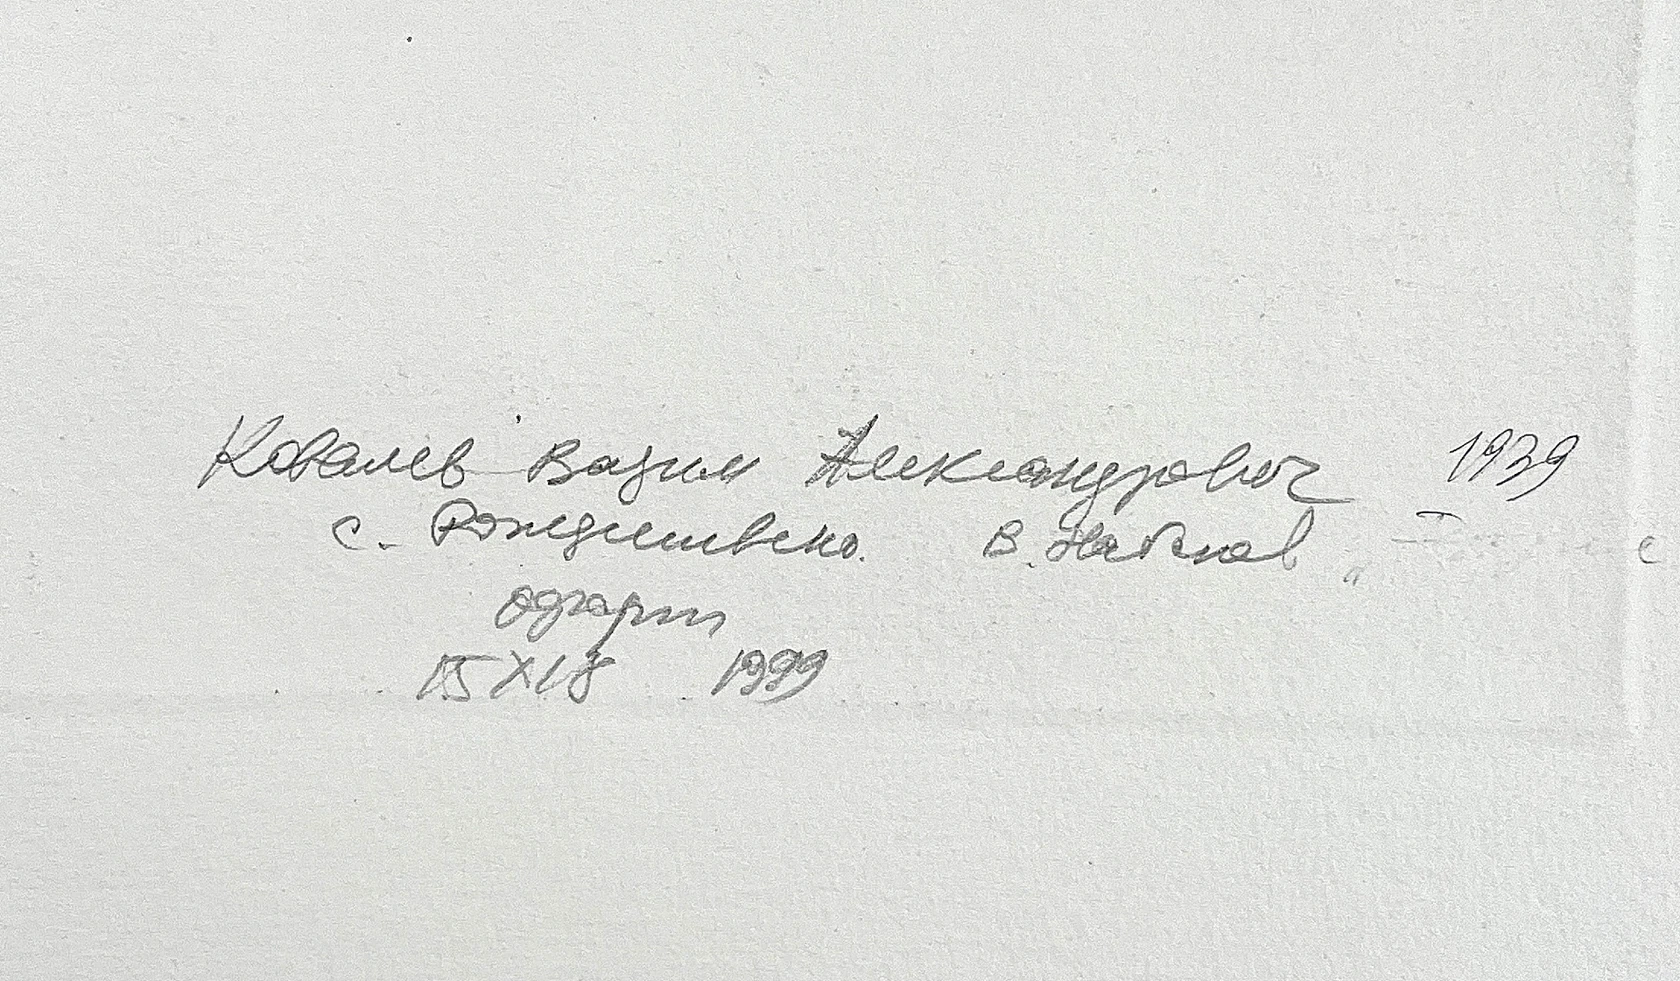 Ковалев Вадим Александрович 1939
с. Рождествено. В. Набоков
офорт
15 X 18 1999